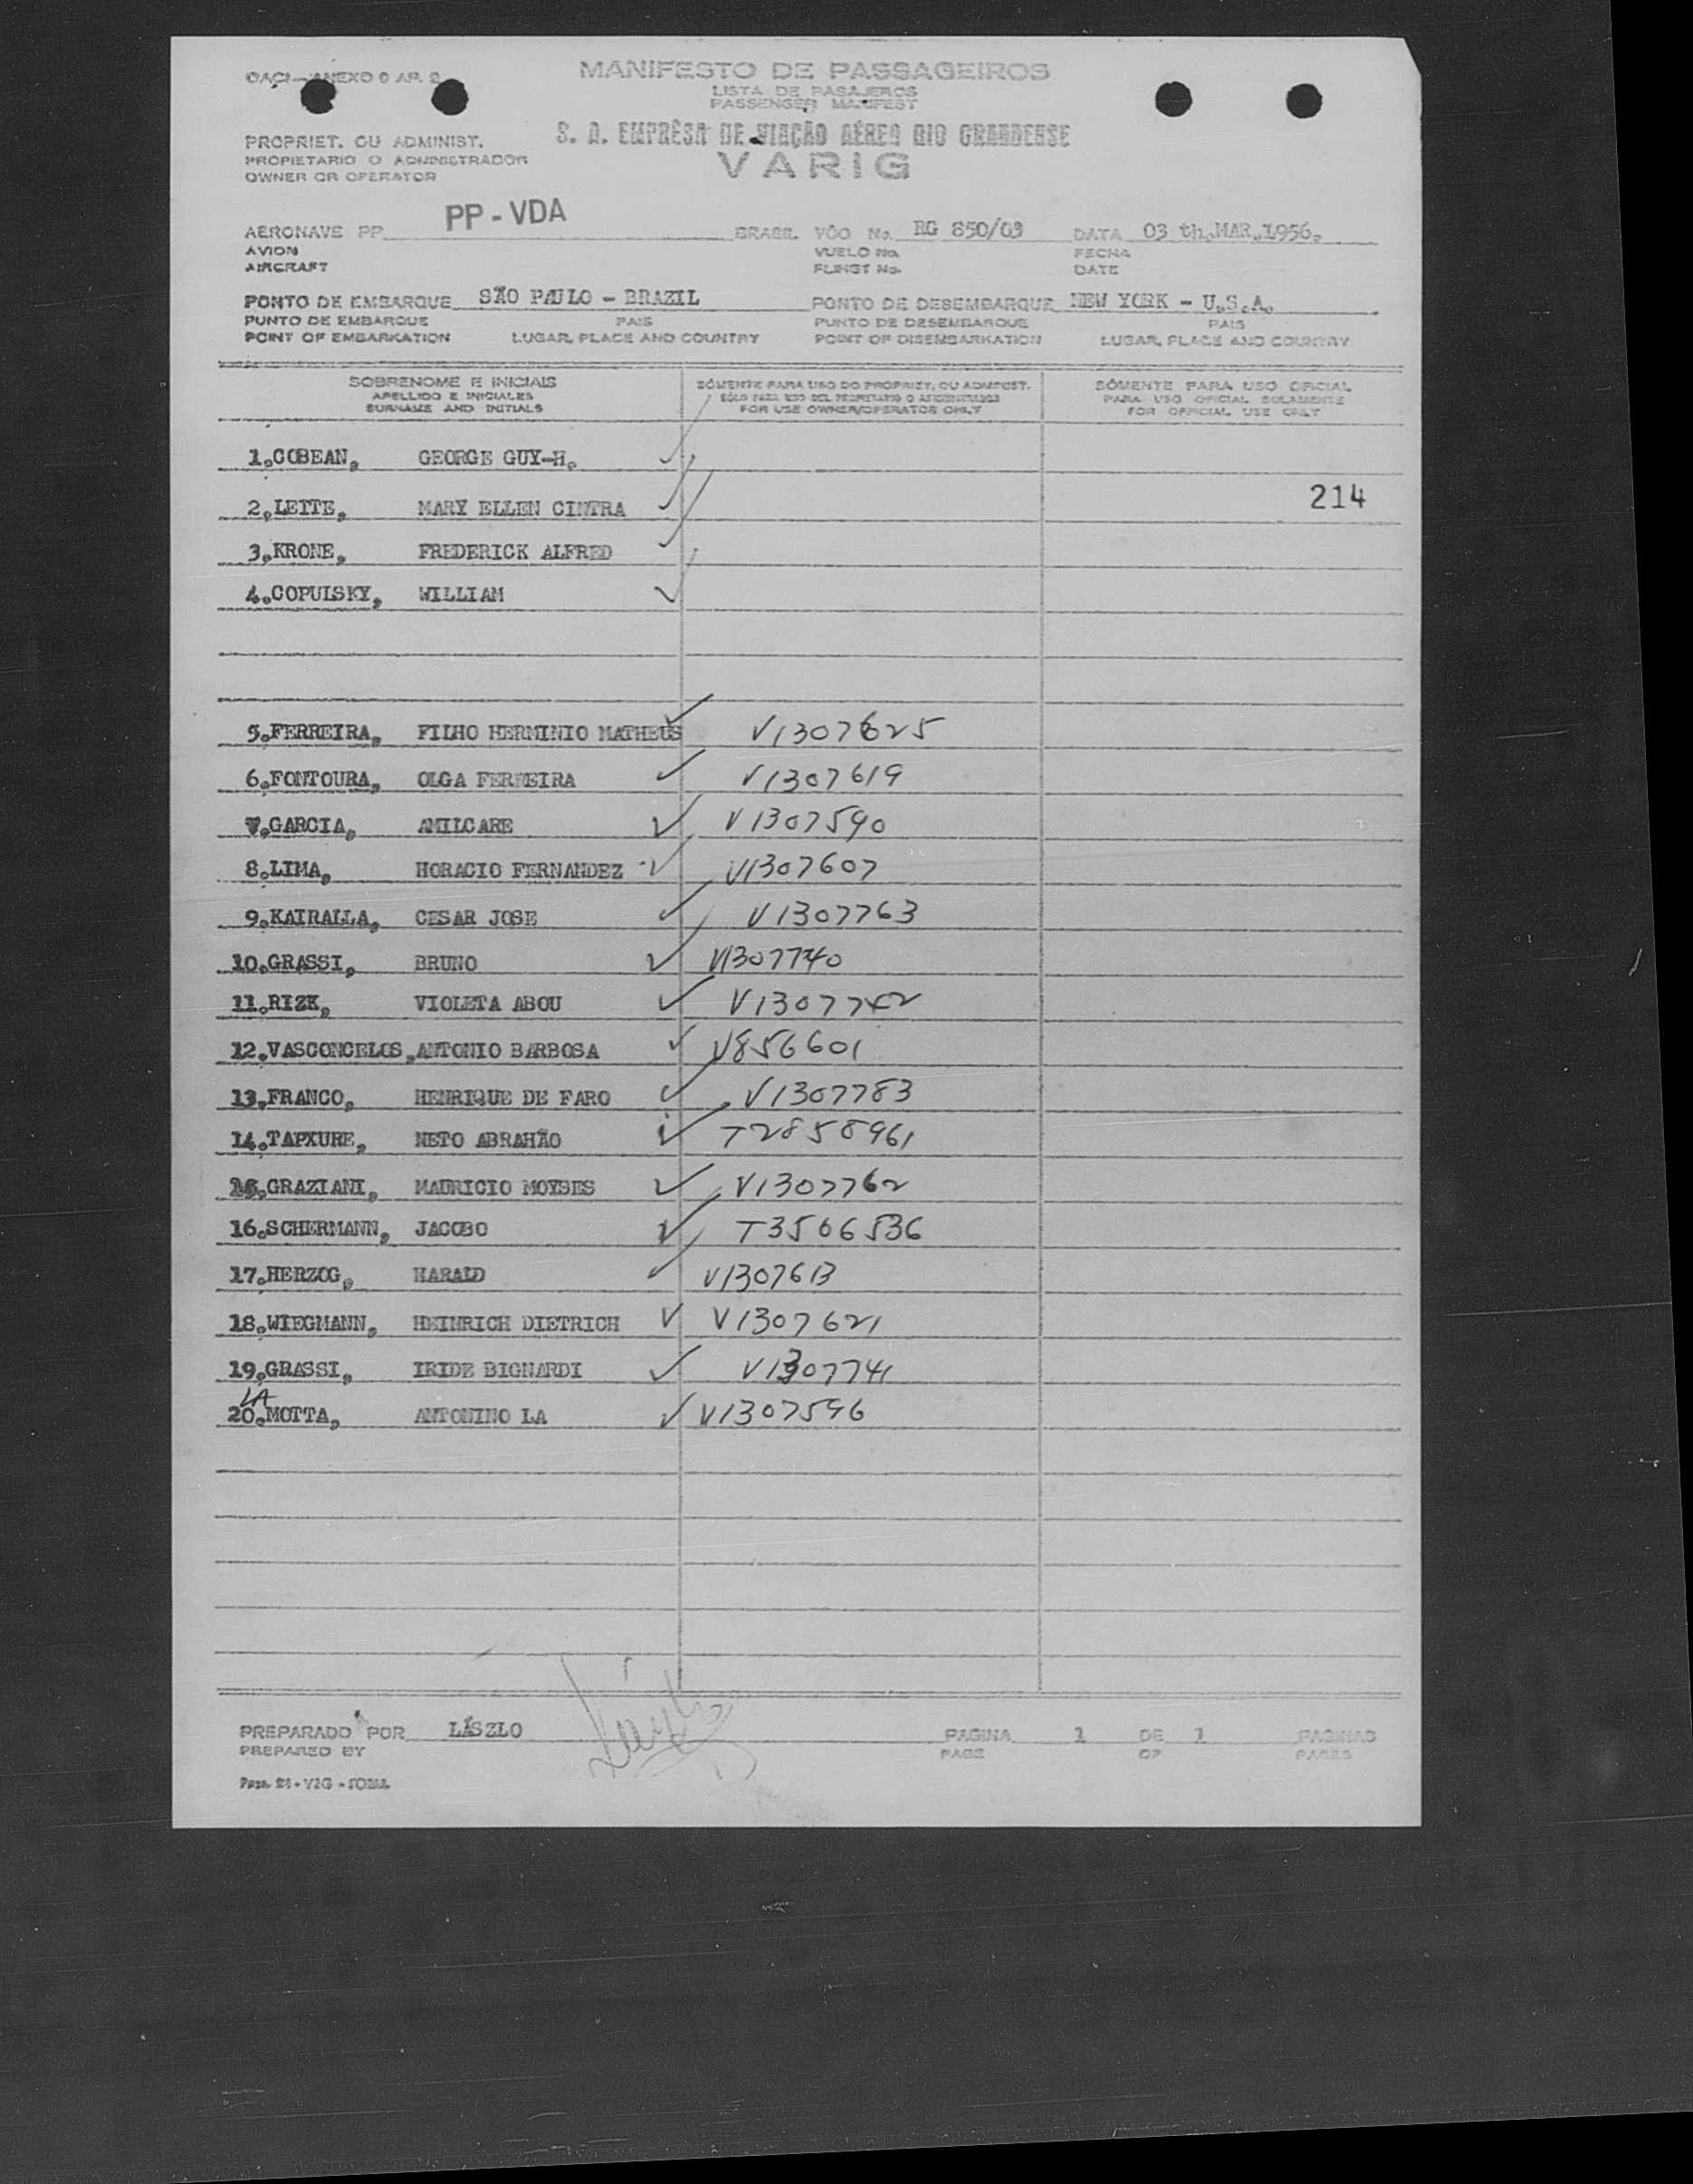 OACI-ANEXO 9 AP. 2
MANIFESTO DE PASSAGEIROS
LISTA DE PASAJEROS
PASSENGER MANIFEST
PROPRIET. OU ADMINIST.
PROPIETARIO O ADMINISTRADOR
OWNER OR OPERATOR
S. A. EMPRÊSA DE VIAÇÃO AÉREA RIO GRANDENSE
VARIG
AERONAVE PP PP - VDA BRASIL VÔO No. RG 850/03 DATA 03 th.MAR.1956.
AVION VUELO No. FECHA
AIRCRAFT FLINGT No. DATE
PONTO DE EMBARQUE SÃO PAULO - BRAZIL PONTO DE DESEMBARQUE NEW YORK - U.S.A.
PUNTO DE EMBARQUE PAIS PUNTO DE DESEMBARQUE PAIS
POINT OF EMBARKATION LUGAR, PLACE AND COUNTRY POINT OF DISEMBARKATION LUGAR, PLACE AND COUNTRY
SOBRENOME E INICIAIS SÓMENTE PARA USO DO PROPRIET, OU ADMINIST. SÓMENTE PARA USO OFICIAL
APELLIDO E INICIALES SÓLO PARA USO DEL PROPIETARIO O ADMINISTRADOR PARA USO OFICIAL SOLAMENTE
SURNAME AND INITIALS FOR USE OWNER/OPERATOR ONLY FOR OFFICIAL USE ONLY
1.COBEAN, GEORGE GUY-H. ✓
214
2.LEITE, MARY ELLEN CINTRA ✓
3.KRONE, FREDERICK ALFRED ✓
4.COPULSKY, WILLIAM ✓
5.FERREIRA, FILHO HERMINIO MATHEUS ✓ V1307625
6.FONTOURA, OLGA FERREIRA ✓ V1307619
7.GARCIA, AMILCARE ✓ V1307590
8.LIMA, HORACIO FERNANDEZ ✓ V1307607
9.KAIRALLA, CESAR JOSE ✓ V1307763
10.GRASSI, BRUNO ✓ V1307740
11.RIZK, VIOLETA ABOU ✓ V1307742
12.VASCONCELOS, ANTONIO BARBOSA ✓ V856601
13.FRANCO, HENRIQUE DE FARO ✓ V1307783
14.TAPXURE, NETO ABRAHÃO ✓ T2858961
15.GRAZIANI, MAURICIO MOYSES ✓ V1307762
16.SCHERMANN, JACOBO ✓ T3506536
17.HERZOG, HARALD ✓ V1307613
18.WIEGMANN, HEINRICH DIETRICH ✓ V1307621
19.GRASSI, IRIDE BIGNARDI ✓ V1307741
LA
20.MOTTA, ANTONINO LA ✓ V1307596
PREPARADO POR LÁSZLO PAGINA 1 DE 1 PAGINAS
PREPARED BY PAGE OF PAGES